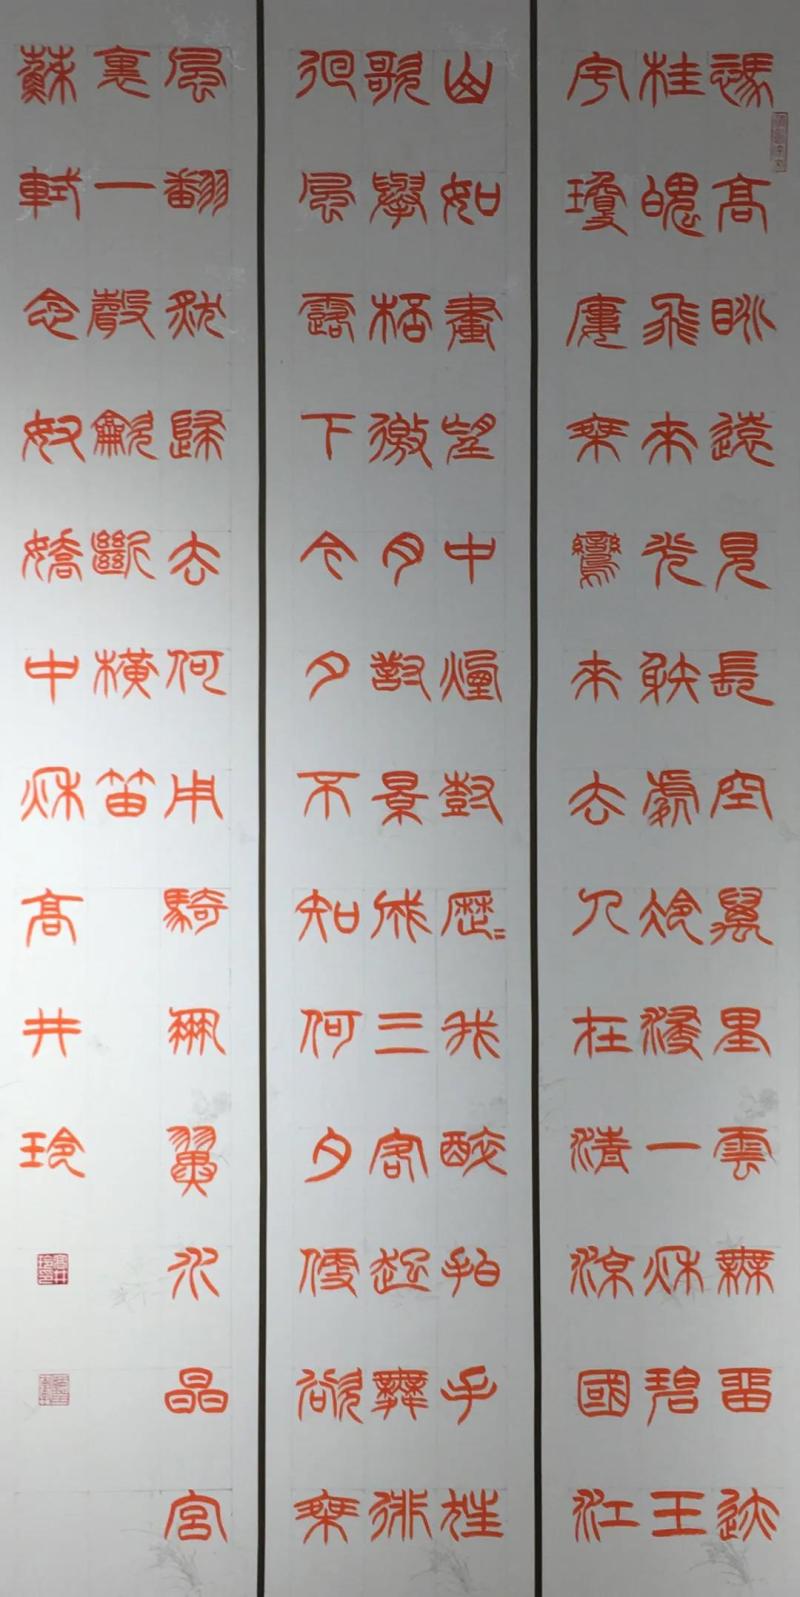 憑高眺遠見長空萬里雲無留迹
桂魄飛來光射處冷浸一秋碧玉
宇瓊廔乘鸞來去人在清涼國江
山如畫望中煙樹歷〻我醉拍手狂
歌舉桮邀月對景成三客起舞徘
徊風露下今夕不知何夕便欲乘
風翻然歸去何用騎鵬翼水晶宮
裏一聲龡斷橫笛
蘇軾念奴嬌中秋高井玲